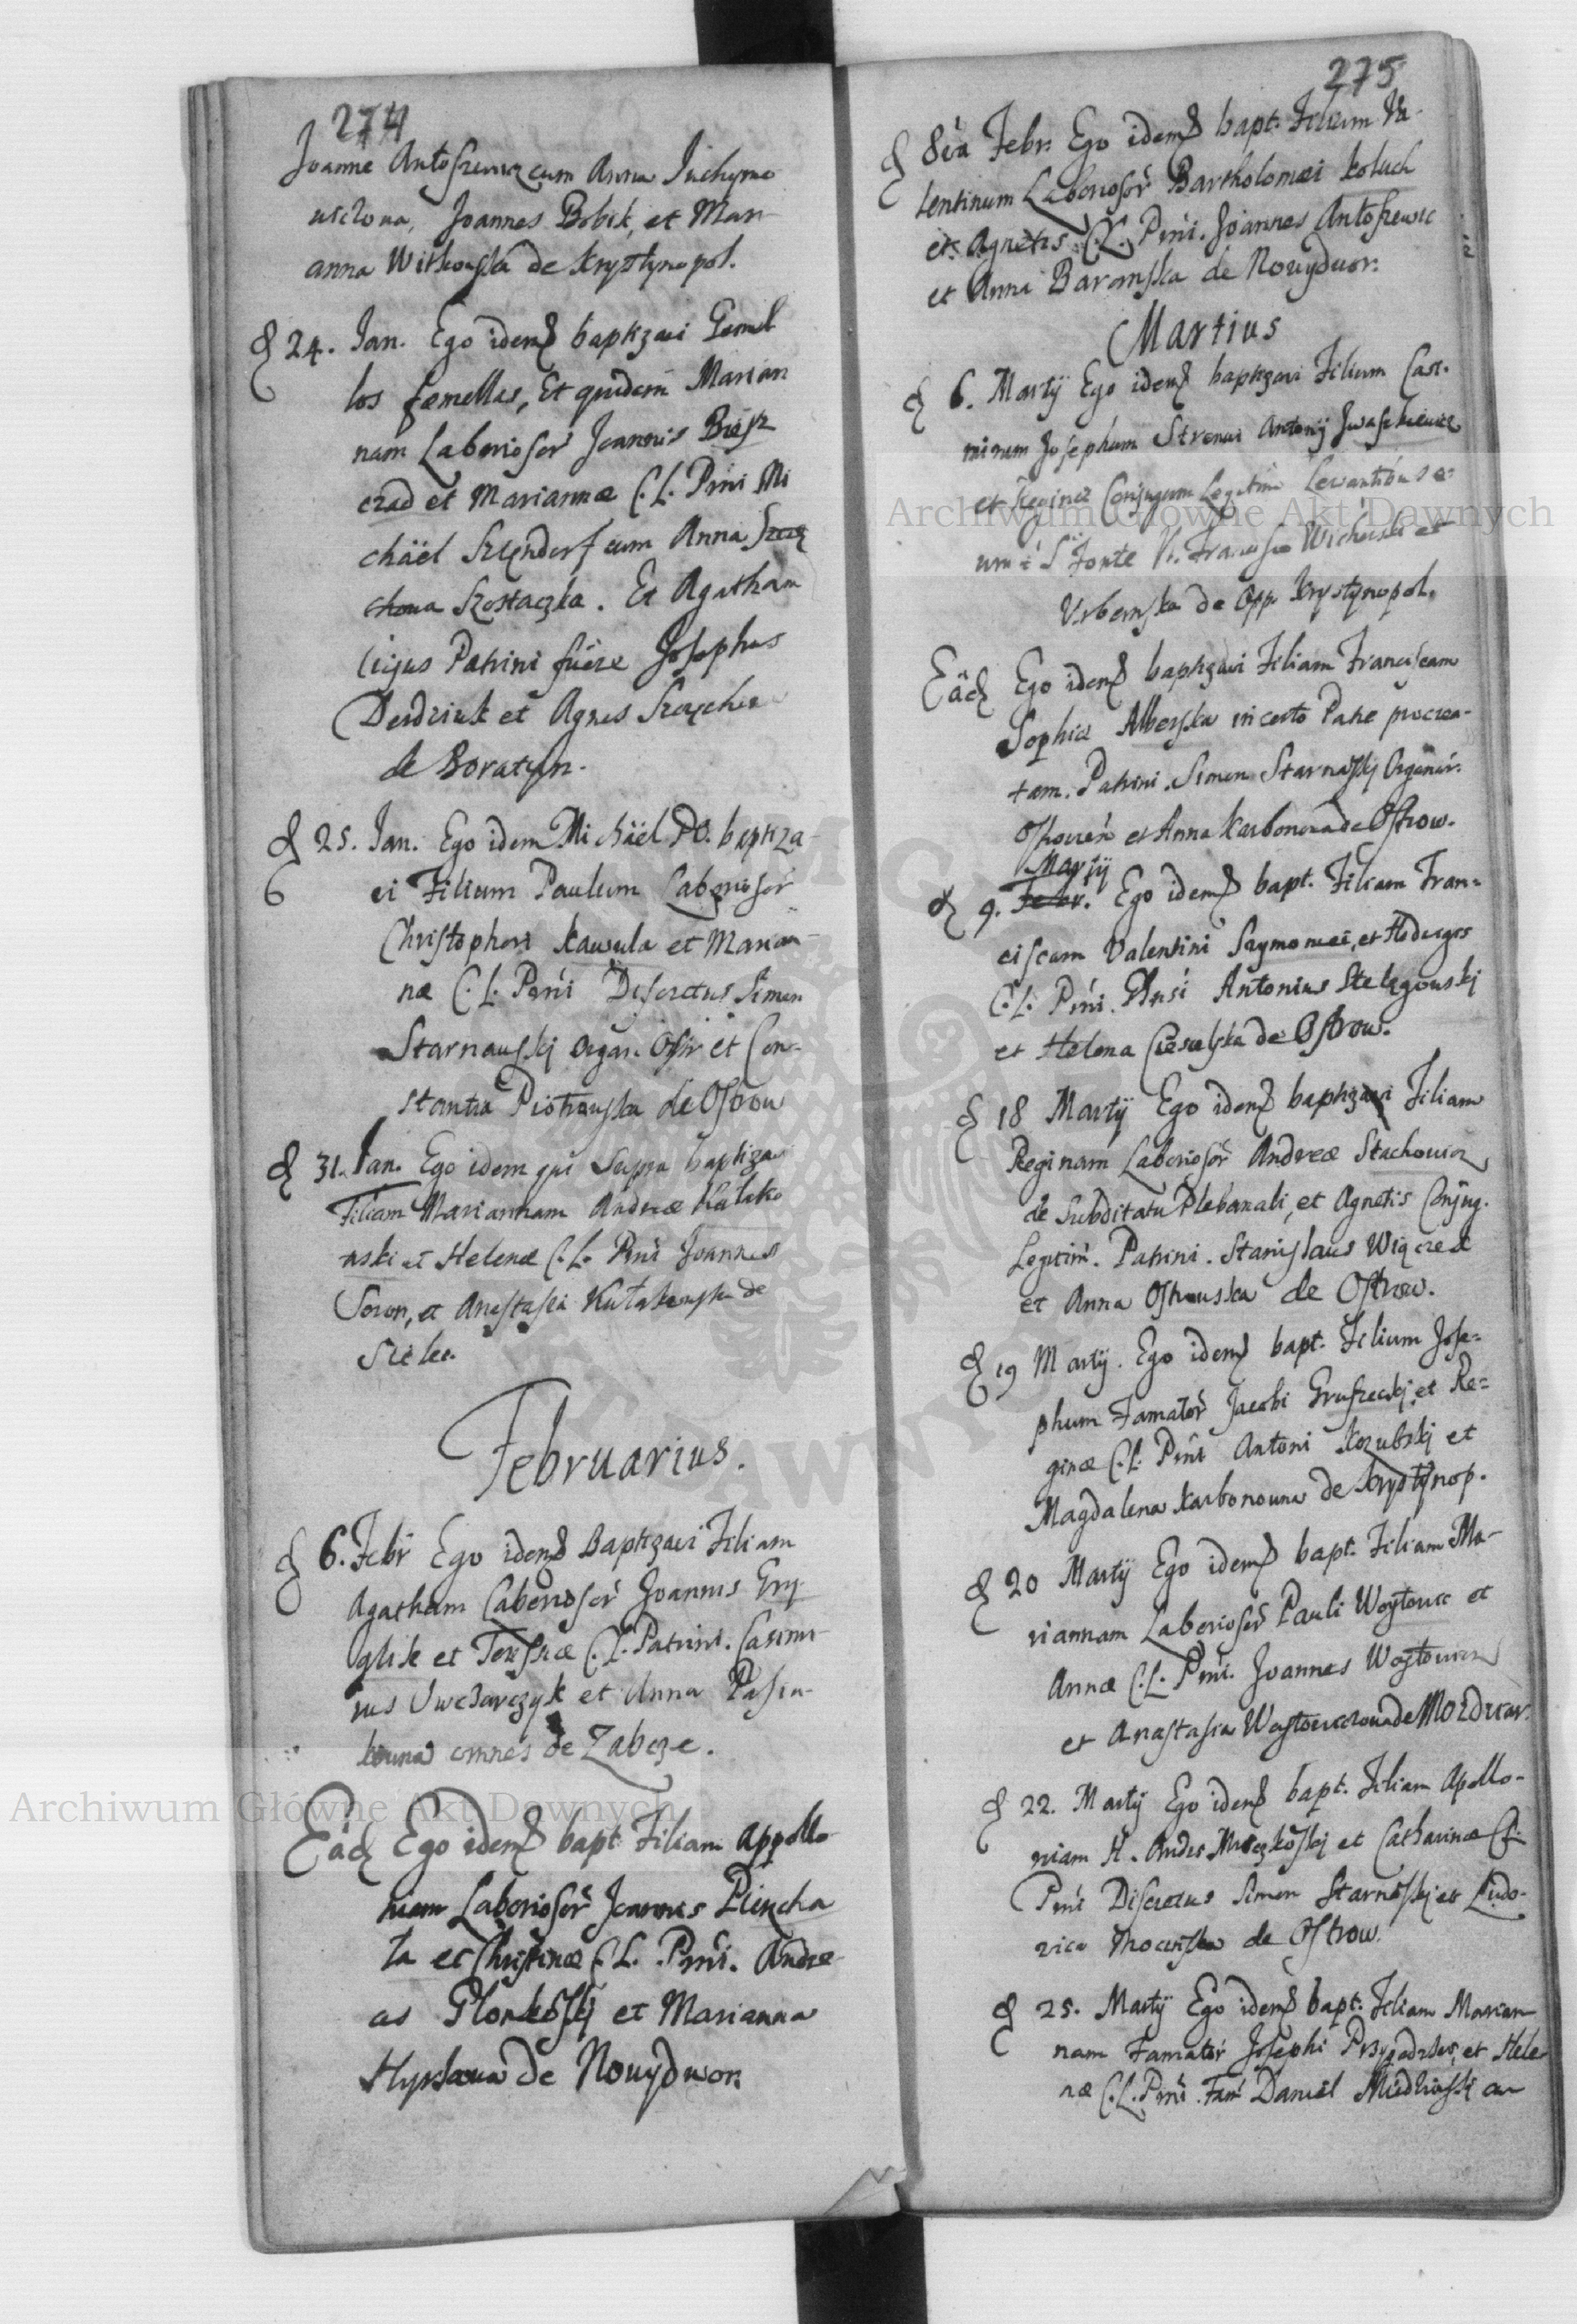 274
Joanne Antoszewicz cum Anna Juchymo
wiczowa, Joannes Bobik, et Mari-
anna Witkowska de Krystynopol.
24. Jan. Ego idem baptizavi Gemel
los femellas, Et quidem Marian
nam Laborioso[r] Joannis Biesz
czad et Mariannæ C. L. Prni Mi
chäel Szlendorf cum Anna
Szostaczka. Et Agatham
cujus Patrini fuere Josephus
Derdziuk et Agnes
de Boratyn.
25. Jan. Ego idem Michäel PO. baptiza-
vi Filium Paulum Laborioser
Christophori Kawula et Marian-
næ C. L. Prni Discretus Simon
Starnauskj Organ. Ostr et Con-
stantia Piotrowska de Ostrow
31. Jan. Ego idem qui Supra baptizavi
Filiam Mariannam Andreæ Kułako
wski et Helenæ C. L. Prni Joannes
Soron, et Anastasia Kułakowska de
Siele.
Februarius.
6. Febr Ego idem Baptizavi Filiam
Agatham Laborioser Joannis Gry
glik et Teressæ C. L. Patrini. Casimi-
rus Owczarczyk et Anna Pasiu-
kowna omnes de Zabcze.
Eád Ego idem bapt Filiam Appollo
niam Laborioser Joannis Piencha
ta et Christinæ C. L. Prni. Andre-
as Plonkoskj et Marianna
de Nowydwor
275
8va Febr. Ego idem bapt. Filium Va-
lentinum Laborioser Bartholomæi Koluch
et Agnetis C. L. Prni. Joannes Antoszewic
et Anna Baranska de Nowydwor.
Martius
6. Martÿ Ego idem baptizavi Filium Casi-
mirum Josephum Strenui Antonij Iwaszkiewicz
et Reginæ Conjugum Legitim Levantibus e-
um è S Fonte Francisco Wichorski et
Urbanska de Opp Krystynopol.
Eäd Ego idem baptizavi Filiam Franciscam
Sophiæ Alberska incerto Patre procrea-
tam. Patrini. Simon Starnaskj Organar.
Ostrovień et Anna Karbonowa de Ostrow.
Martÿ
9. Febr. Ego idem bapt. Filiam Fran-
ciscam Valentini Szymoniei, et Hedwigis
C. L. Prni. Antonius Stelągouskj
et Helena Ciesielska de Ostrow.
18 Martÿ Ego idem baptizavi Filiam
Reginam Laborioser Andreæ Stachowicz
de Subditatu Plebanali, et Agnetis Conjug.
Legitim. Patrini. Stanislaus Wiącrek
et Anna Ostrowska de Ostrow.
19 Martÿ. Ego idem bapt. Filium Jose-
phum Famator Jacobi Gruszeckj, et Re-
ginæ C. L. Prni Antoni Kozubskj et
Magdalena Karbonowna de Krystynop.
20 Martÿ Ego idem bapt. Filiam Ma-
riannam Laborioser Pauli Woytowic et
Annæ C. L. Prni. Joannes Woytowicz
et Anastasia Woytowiczowa de Mozdwor.
22. Martÿ Ego idem bapt. Filiam Apollo-
niam H. Andrs Mroczkoskj et Catharinæ
Prni Discretus Simon Starnaskj et Ludo-
vica de Ostrow.
25. Martÿ Ego idem bapt. Filiam Marian
nam Famator Josephi et Hele
næ C. L. Prni. Fam Daniel